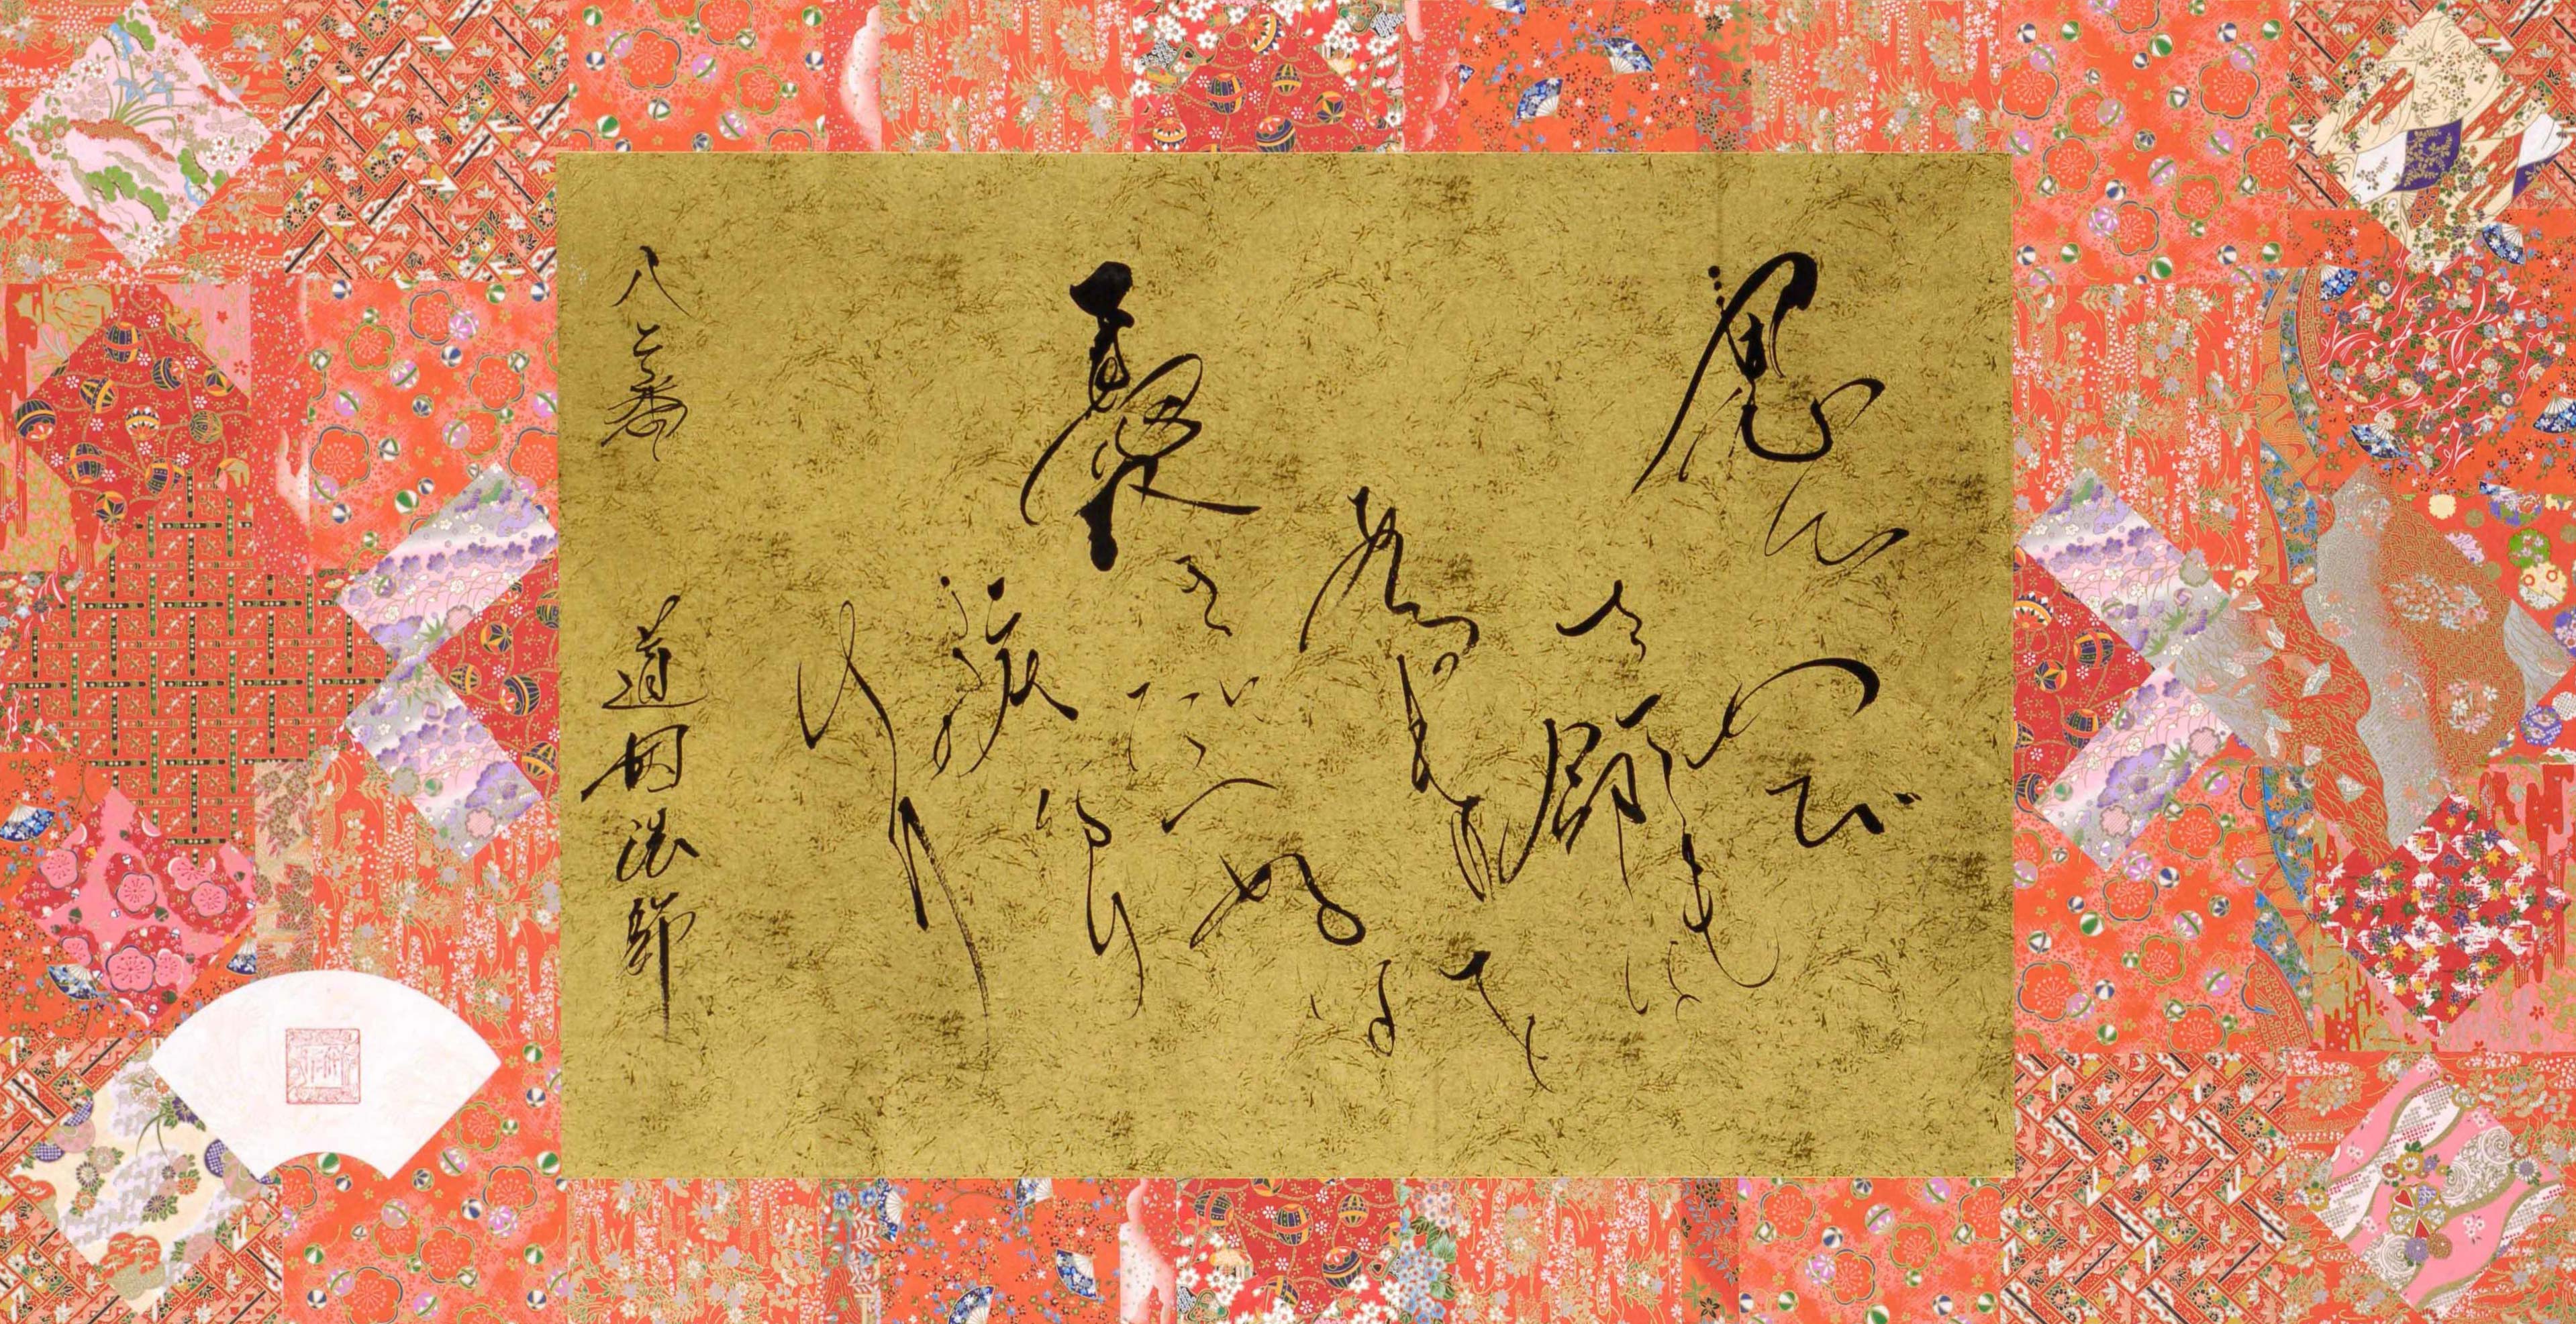 思ひ
わび
さても
命は
あるものを
憂きに
たへ
ぬは
涙
なり
けり
八二番 道因法師